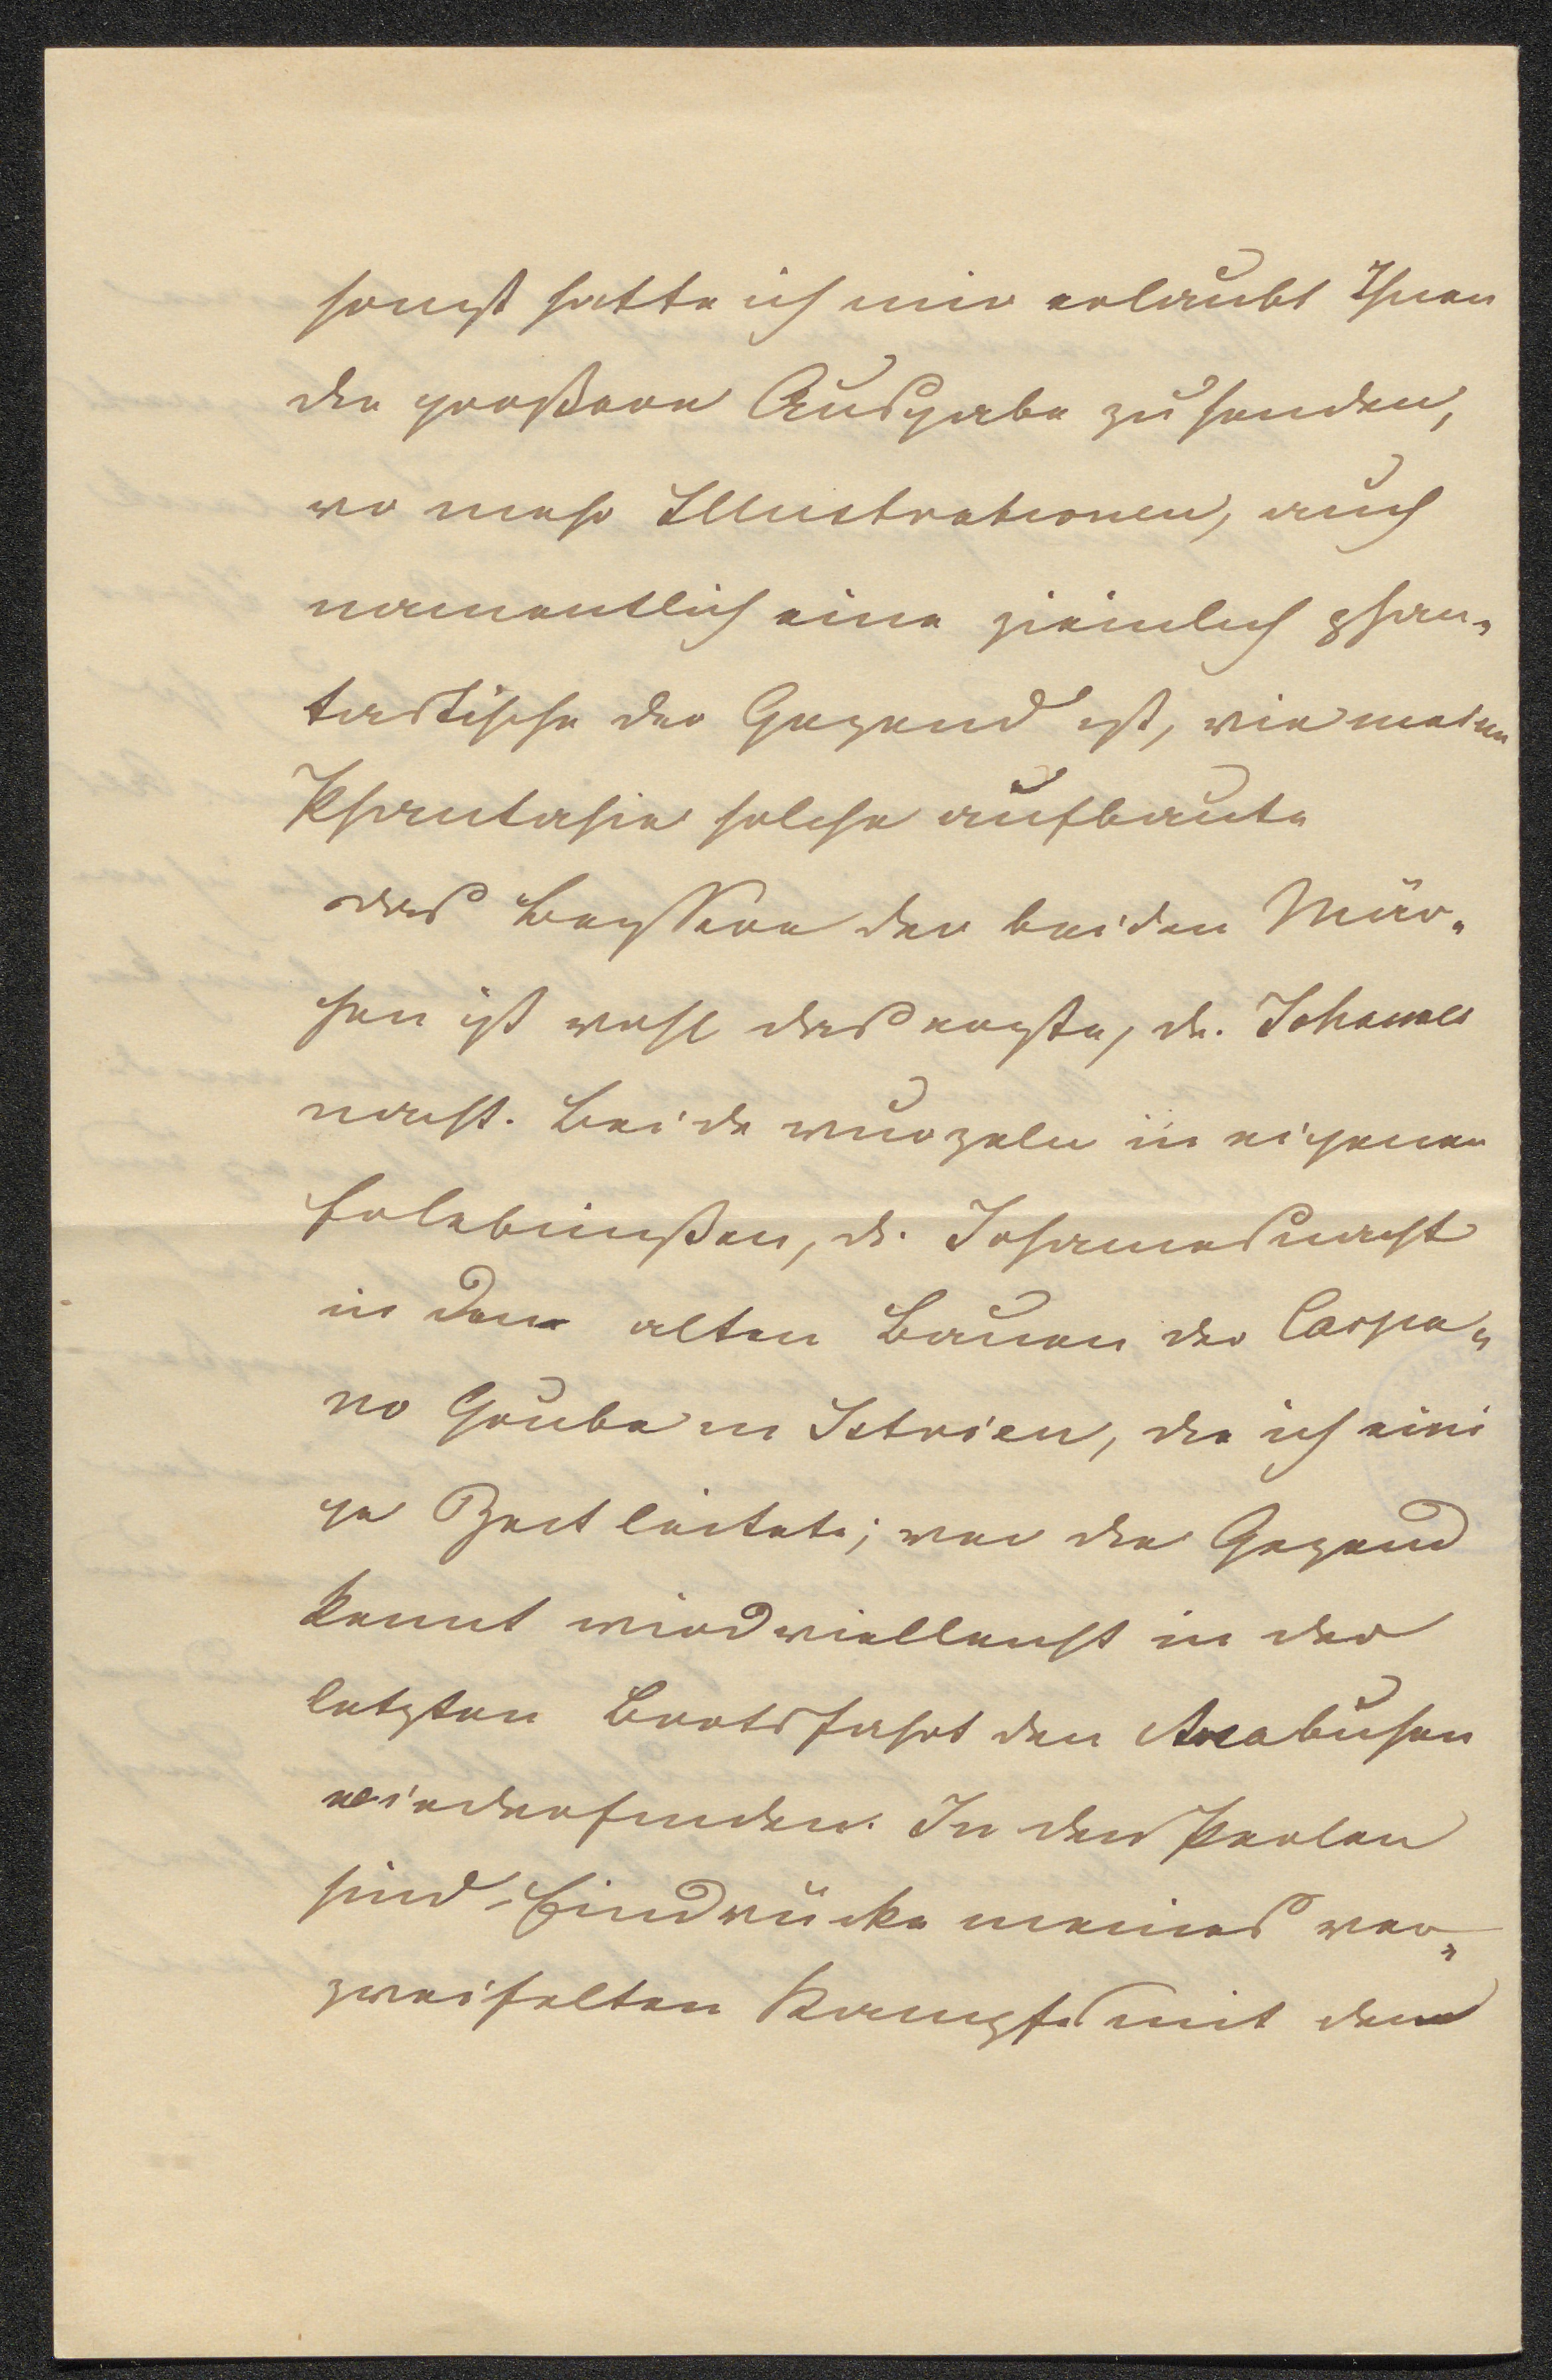 sonst hatte ich mir erlaubt Ihnen
die großere Ausgabe zu senden,
wo mehr Illustrationen, auch
namentlich eine ziemlich phan„
tastische der Gegend ist, wie meine
Phantasie solche aufbaute
das bessere der beiden Mär„
chen ist wohl das erste, di. Johannes
nacht. Beide wurzeln in eigenen
Erlebnißen, di. Johannesnacht
in den alten Bauen der Carpa„
no Grube in Istrien, die ich eini
ge Zeit leitete; wer die Gegend
kennt wird vielleicht in der
letzten Bootsfahrt den Arsabusen
wiederfinden. In den Perlen
sind Eindrücke meines ver„
zweifelten Kampfes mit dem